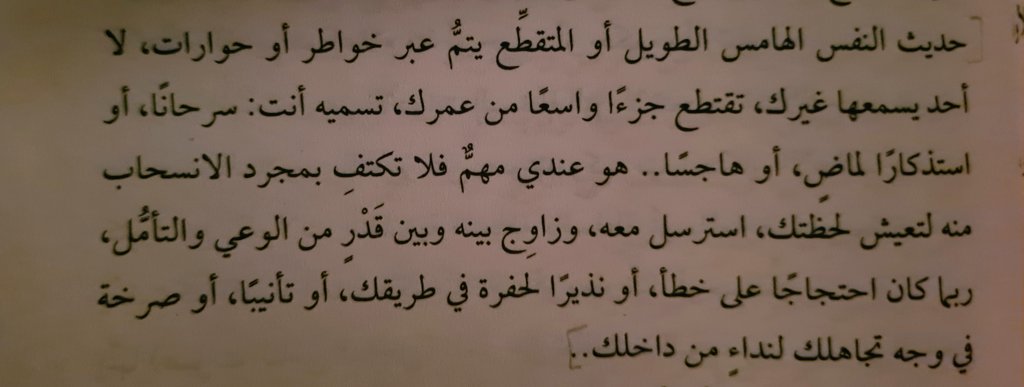 حديث النفس الهامس الطويل أو المتقطِّع يتمُّ عبر خواطر أو حوارات، لا
أحد يسمعها غيرك، تقتطع جزءًا واسعًا من عمرك، تسميه أنت: سرحانًا، أو
استذكارًا لماضٍ، أو هاجسًا.. هو عندي مهمٌّ فلا تكتفِ بمجرد الانسحاب
منه لتعيش لحظتك، استرسل معه، وزاوِج بينه وبين قَدْرٍ من الوعي والتأمُّل،
ربما كان احتجاجًا على خطأ، أو نذيرًا لحفرة في طريقك، أو تأنيبًا، أو صرخة
في وجه تجاهلك لنداءٍ من داخلك..